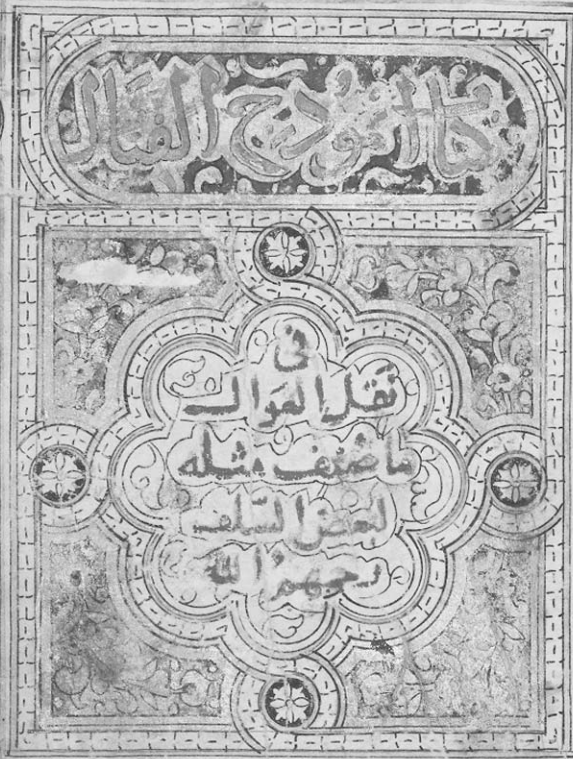 كتاب انموذج القتال
في
نقل العوال
ما صنف مثله
لبعض السلف
رحمهم الله